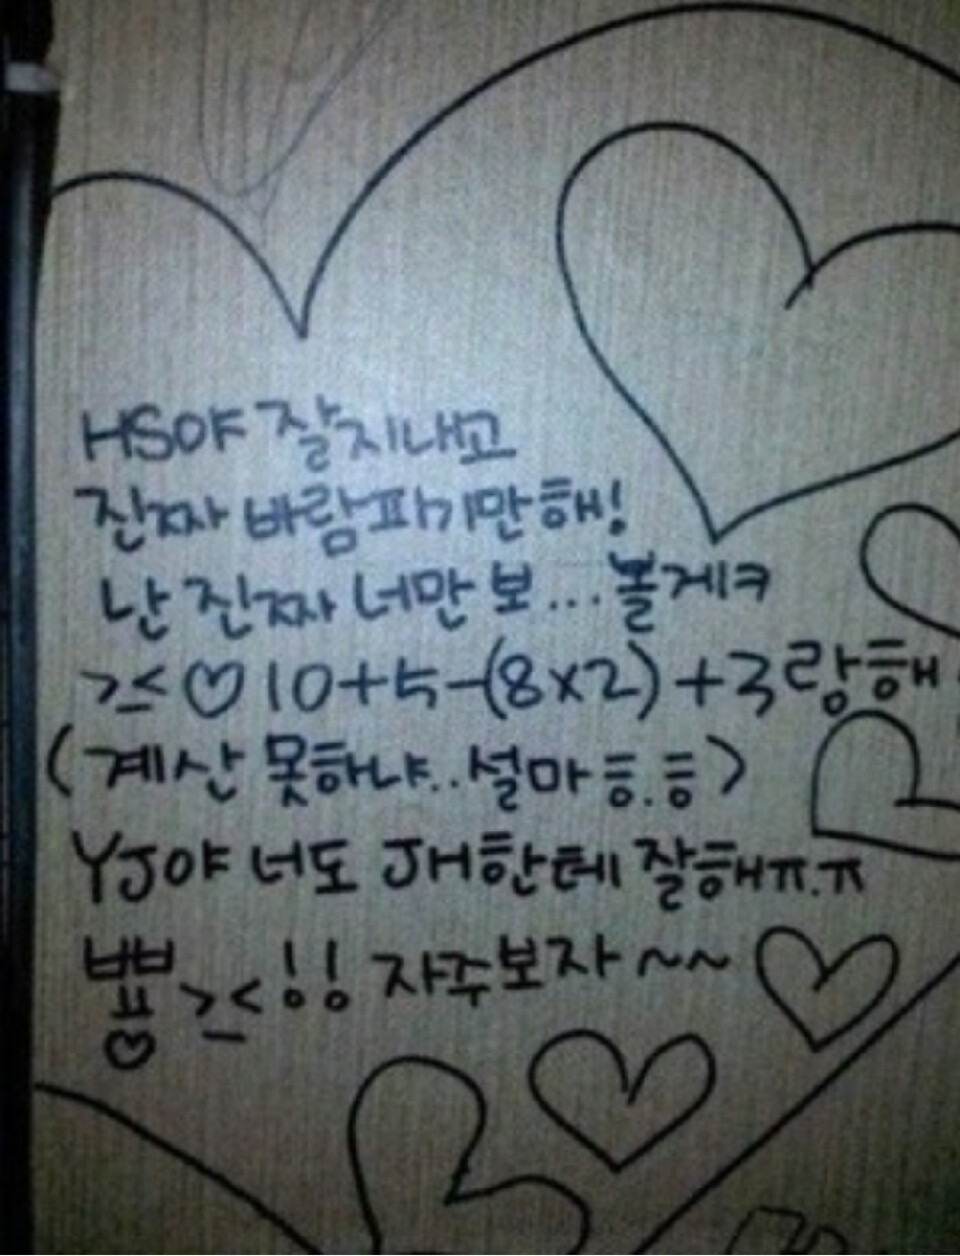 HS야 잘지내고
진짜 바람피기만해!
난 진짜 너만 보...볼게ㅋ
>_< ♡ 10+5-(8x2)+3랑해
(계산 못하냐..설마 ㅎㅎ.ㅎㅎ)
YJ야 너도 JH한테 잘해ㅠ.ㅠ
뿅 >_< !! 자주보자 ~~